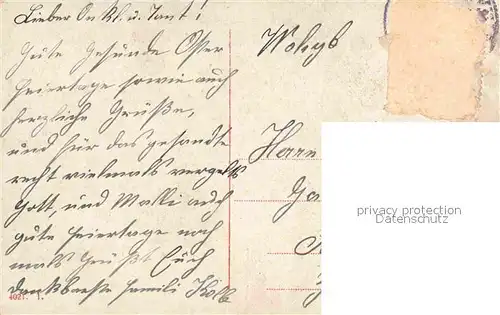 Lieber Onkl. u. Tant!
Gute Gesunde Oster
feiertage sowie auch
herzliche Grüße,
und für das gesandte
recht vielmals vergelts
Gott, und Malli auch
gute feiertage noch
mals Grüßt Euch
dankbarste Famili Kolb
4021. 1.
Herrn
privacy protection
Datenschutz